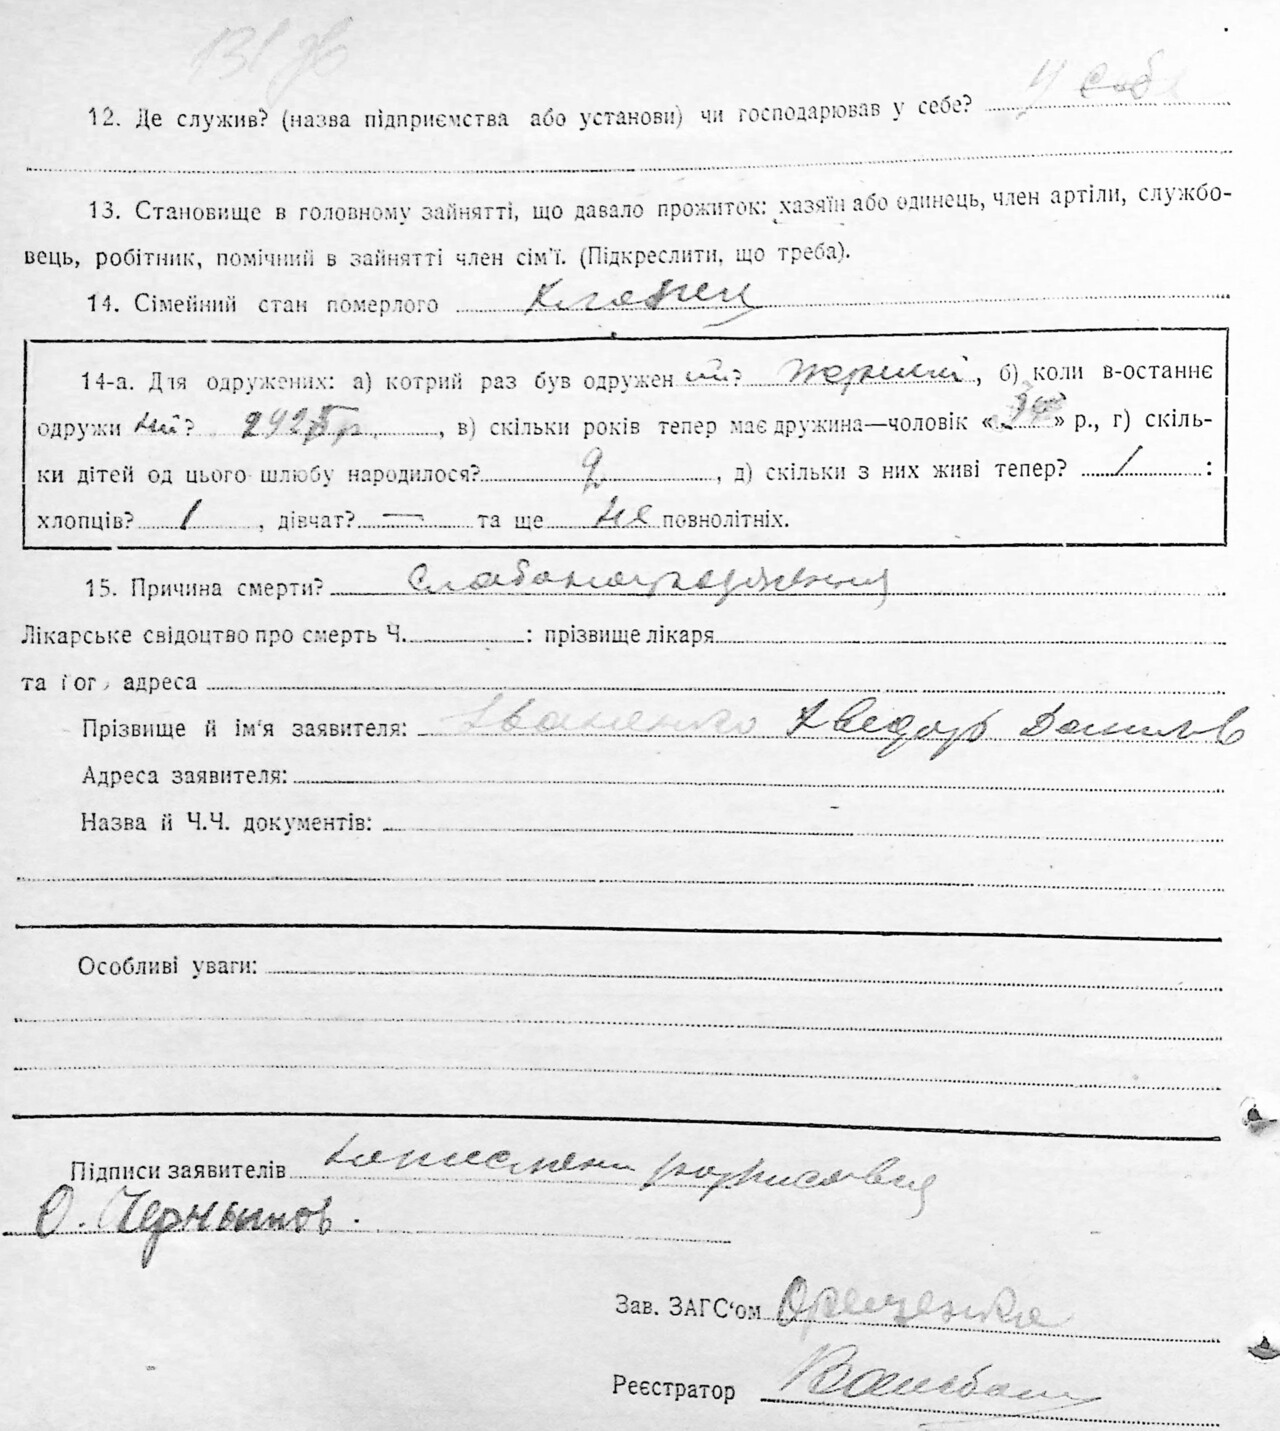 12. Де служив? (назва підприємства або установи) чи господарював у себе? у себе
13. Становище в головному зайнятті, що давало прожиток: хазяїн або одинець, член артіли, службо-
вець, робітник, помічний в зайнятті член сім'ї. (Підкреслити, що треба).
14. Сімейний стан померлого
14-а. Для одружених: а) котрий раз був одружен ий? перший, б) коли в-останнє
одружи ний? , в) скільки років тепер має дружина—чоловік « » р., г) скіль-
ки дітей од цього шлюбу народилося? 2, д) скільки з них живі тепер? 1:
хлопців? 1, дівчат? — та ще не повнолітніх.
15. Причина смерти?
Лікарське свідоцтво про смерть Ч. : прізвище лікаря
та його адреса
Прізвище й ім'я заявителя: Іваненко Хведор Данилов
Адреса заявителя:
Назва й Ч.Ч. документів:
Особливі уваги:
Підписи заявителів
О.
Зав. ЗАГС'ом
Реєстратор